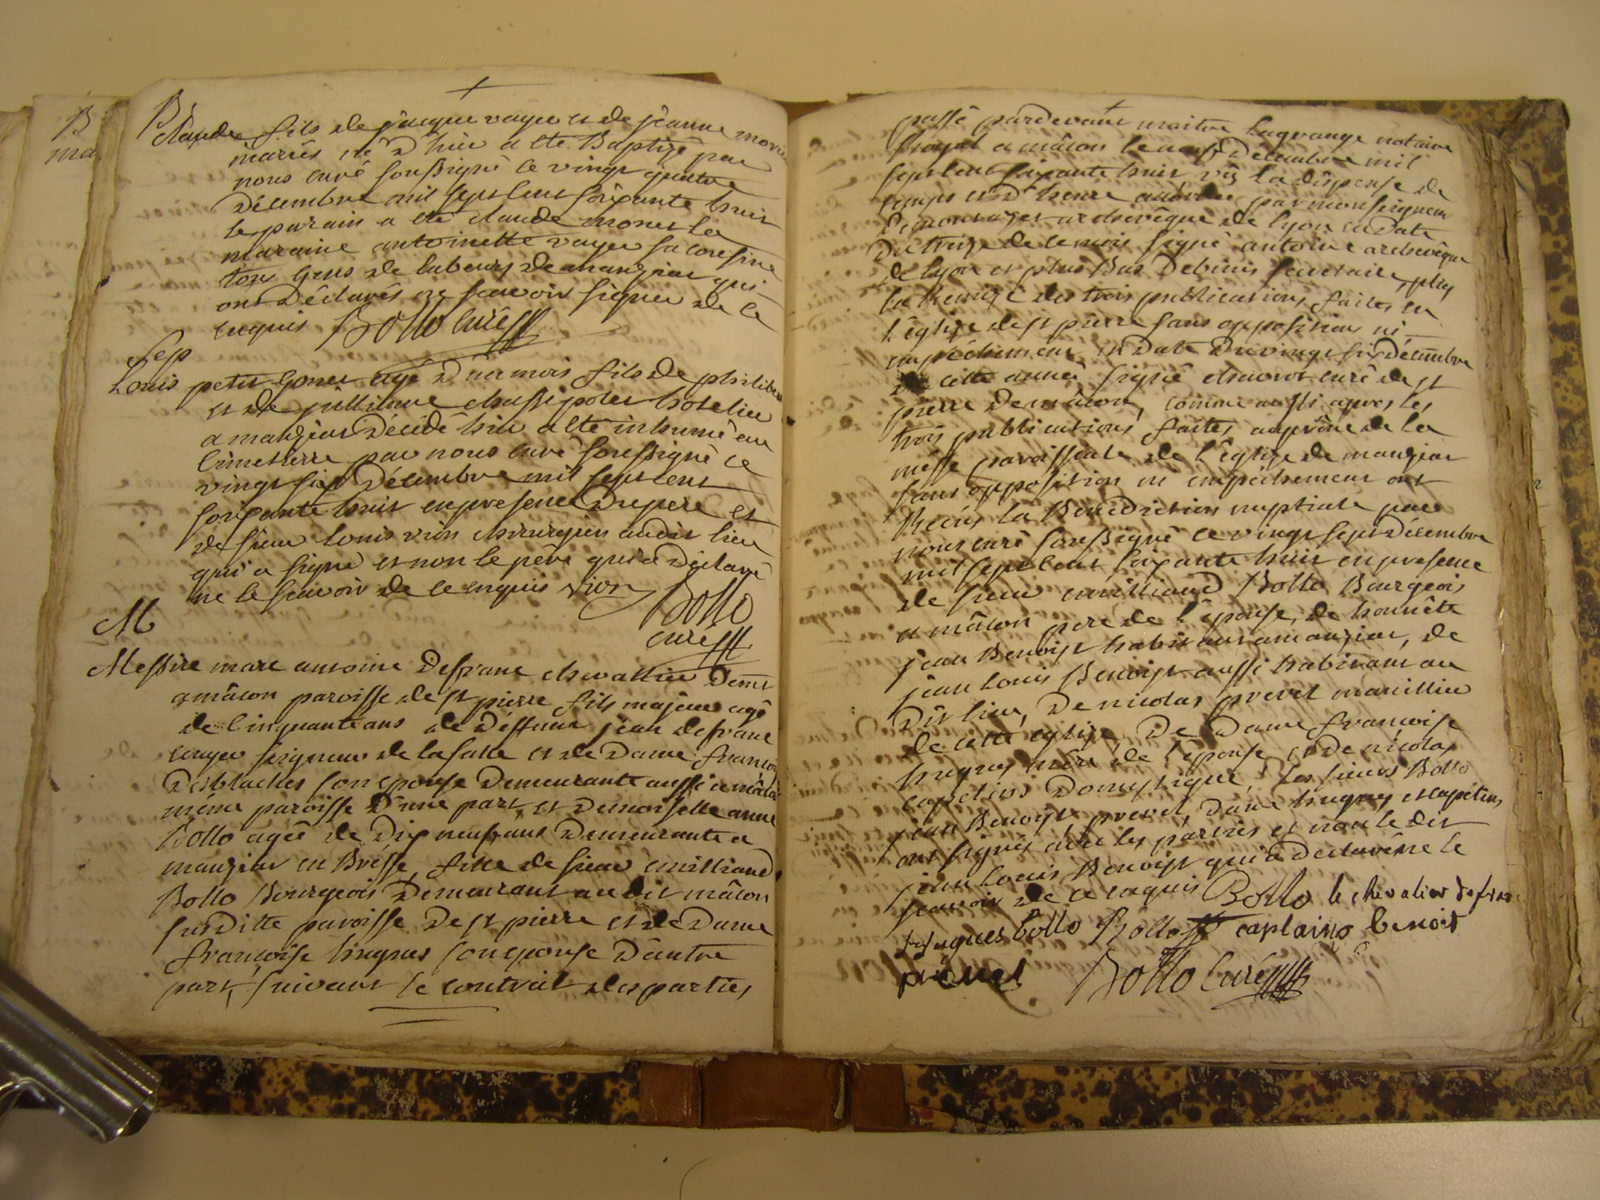 B
Claude fils de jacque vayer et de jeanne
mariés né d'hier a été Baptizé par
nous curé soussigné ce vingt quatre
décembre mil sept cent soixante huit
le parain a été claude monet la
maraine antoinette vayer sa cousine
tous gens de labeurs de manziat qui
ont déclarés ne scavoir signer de ce
enquis Bollo curé
Sep
Louis petit Gonet agé d'un mois fils de philibert
et de jullienne chassipolet hotelier
a manziat décédé hier a été inhumé au
cimetierre par nous curé soussigné ce
vingt six Décembre mil sept cent
soixante huit en presence du pere et
de sieur Louis vion chirurgien audit lieu
qui a signé et non le pere qui a Déclaré
ne le scavoir de ce enquis vion
Bollo
curé
M
Messire marc antoine Defranc chevallier Demt
a mâcon paroisse de st pierre fils majeur agé
de cinquante ans de déffunt jean defranc
ecuyer seigneur de la salle et de Dame
Desblaches son epouse Demeurante aussi a mâcon
même paroisse d'une part, et Demoiselle anne
Bollo agée de Dix neuf ans Demeurante a
manziat en Bresse, fille de sieur emilliand
Bollo Bourgeois Demeurant au dit mâcon
susditte paroisse De st pierre et de Dame
françoise hugues son epouse D'autre
part, suivant le contrait des parties
passé pardevant maitre Lagrange notaire
Royal a mâcon le neuf Décembre mil
sept cent soixante huit vu la dispense de
temps et d'heure accordée par monseigneur
archevêque de lyon en date
Du treize de ce mois signé antoine archevêque
de lyon et plus Bas Debinis secretaire, plus
la Remise des trois publications faites en
l'église de st pierre sans opposition ni
empéchement en Date du vingt six Décembre
de cette année, signé curé de st
pierre de mâcon, comme aussi apres les
trois publications faites au prône de la
messe paroissiale de l'église de manziat
sans opposition ni empéchement ont
Recus la Benediction nuptiale par
nous curé soussigné ce vingt sept Décembre
mil sept cent soixante huit en presence
de sieur emilliand Bollo Bourgeois
a mâcon pere de l'epouse, de honnête
jean Benoist habitant a manziat, de
jean Louis Benoist aussi habitant au
dit lieu, De nicolas prevet marillier
de cette eglise, De Dame francoise
hugues mère de l'epouse et de nicolas
capelins Domestique, les sieurs Bollo
jean Benoist prevet, Dame hugues et capelins
ont signés avec les parties et non le dit
jean Louis Benoist qui a declaré ne le
scavoir de ce enquis Bollo le chevalier de franc
hugues bollo Bollo Benoist
prévet Bollo Curé